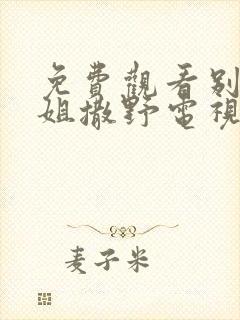 免費觀看别
姐撒野電視
麦子米